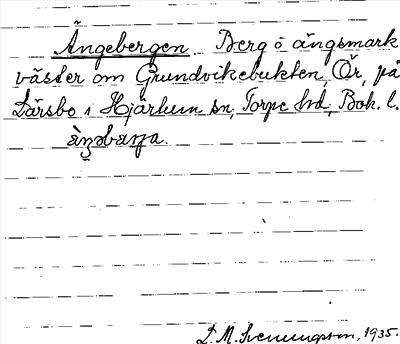 Ängebergen Berg o ängsmark
väster om Grundvikebukten, Ör, på
Därsbo i Hjärtum sn, Torpe hd, Boh. l.
D. M. Svenungsson, 1935.